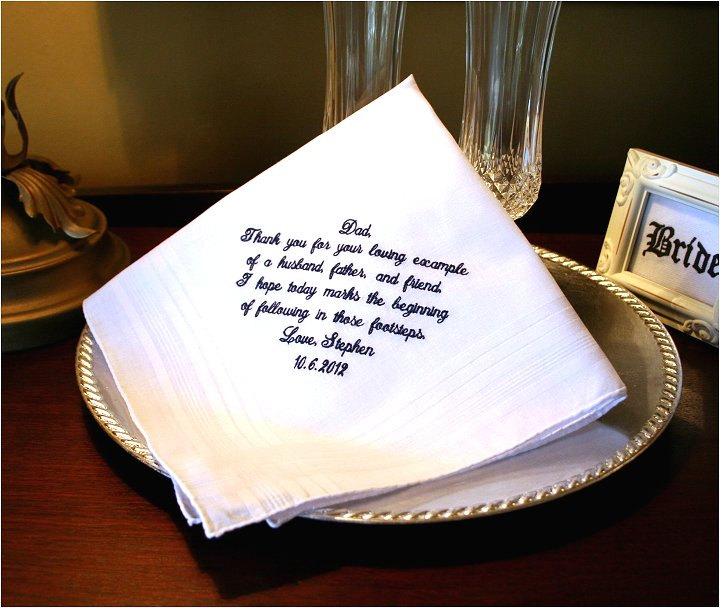 Dad,
Thank you for your loving example
of a husband, father, and friend.
I hope today marks the beginning
of following in those footsteps.
Love, Stephen
10.6.2012
Bride